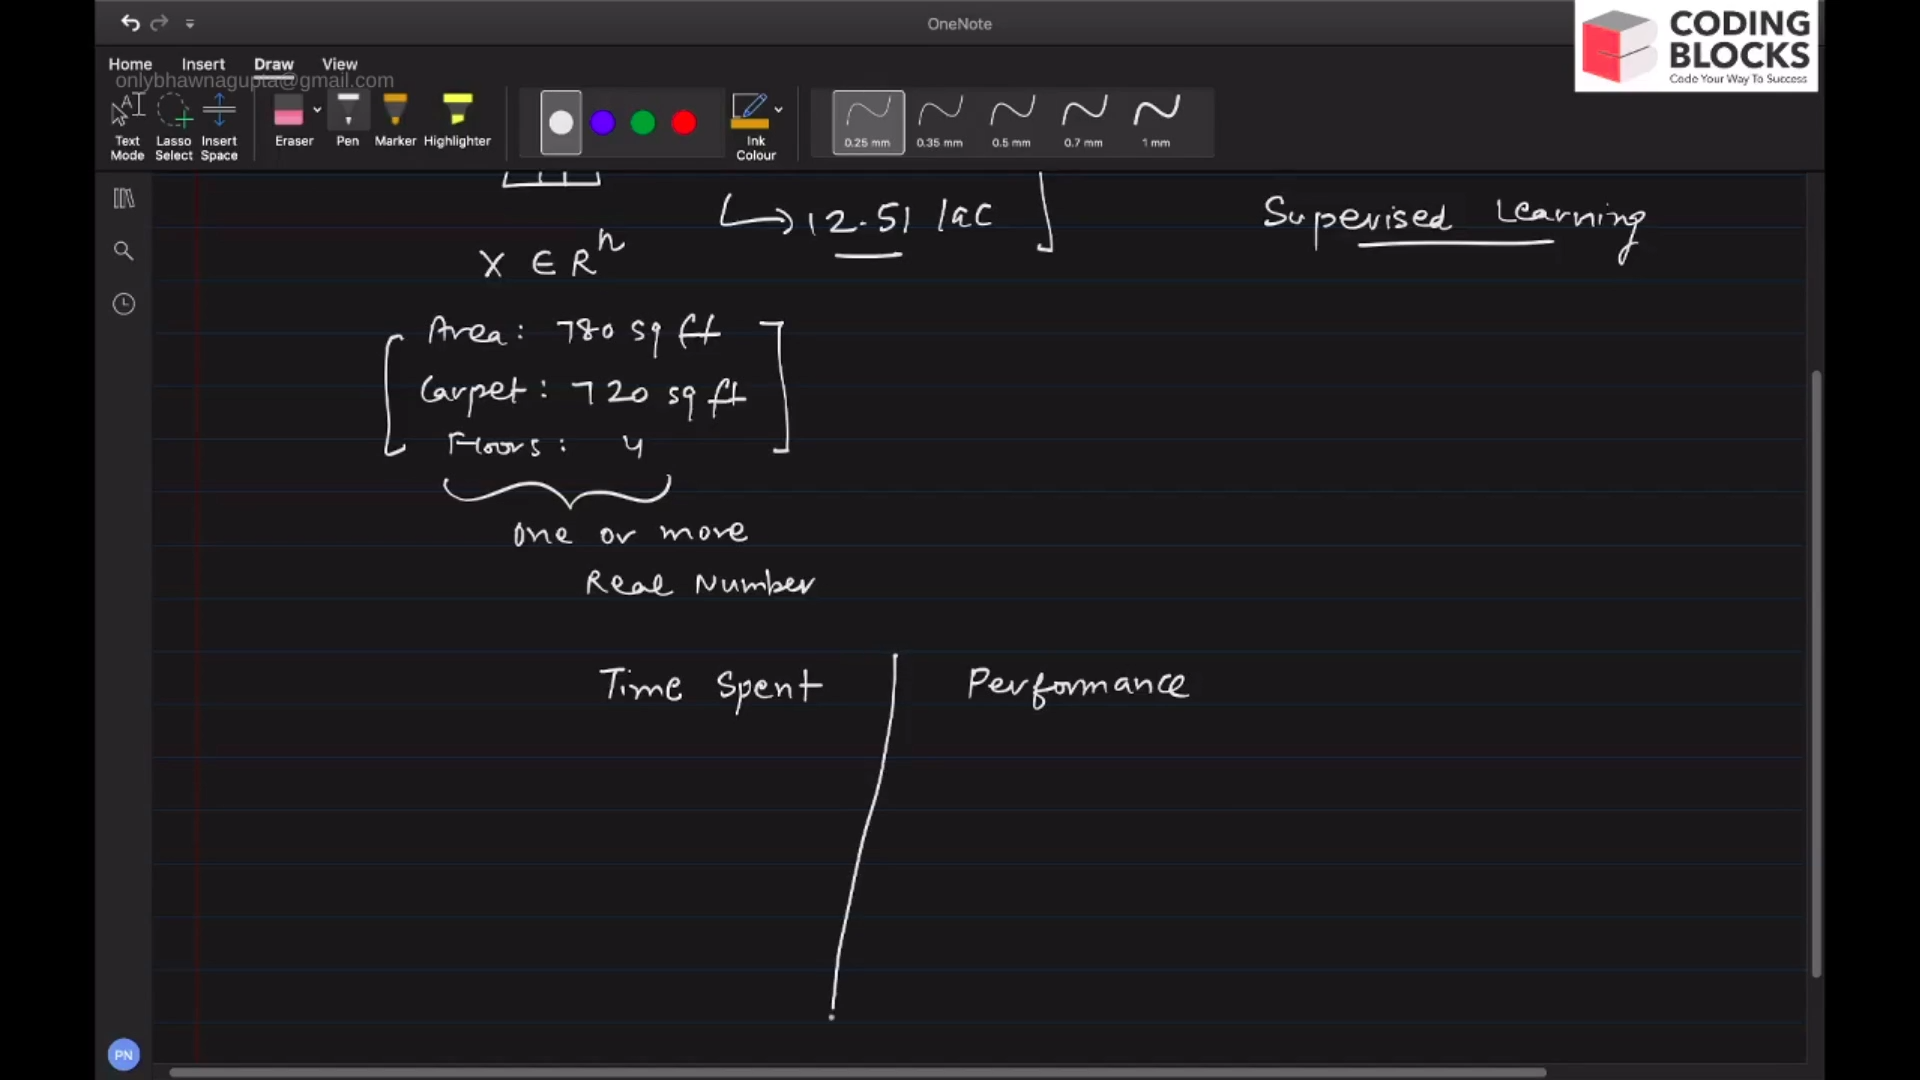 OneNote
CODING
BLOCKS
Code Your Way To Success
Home Insert Draw View
onlybhawnagupta@gmail.com
Text Mode Lasso Select Insert Space Eraser Pen Marker Highlighter Ink Colour 0.25 mm 0.35 mm 0.5 mm 0.7 mm 1 mm
12.51 lac
Supervised Learning
X ∈ Rⁿ
Area: 780 sq ft
Carpet: 720 sq ft
Floors: 4
One or more
Real Number
Time Spent Performance
PN